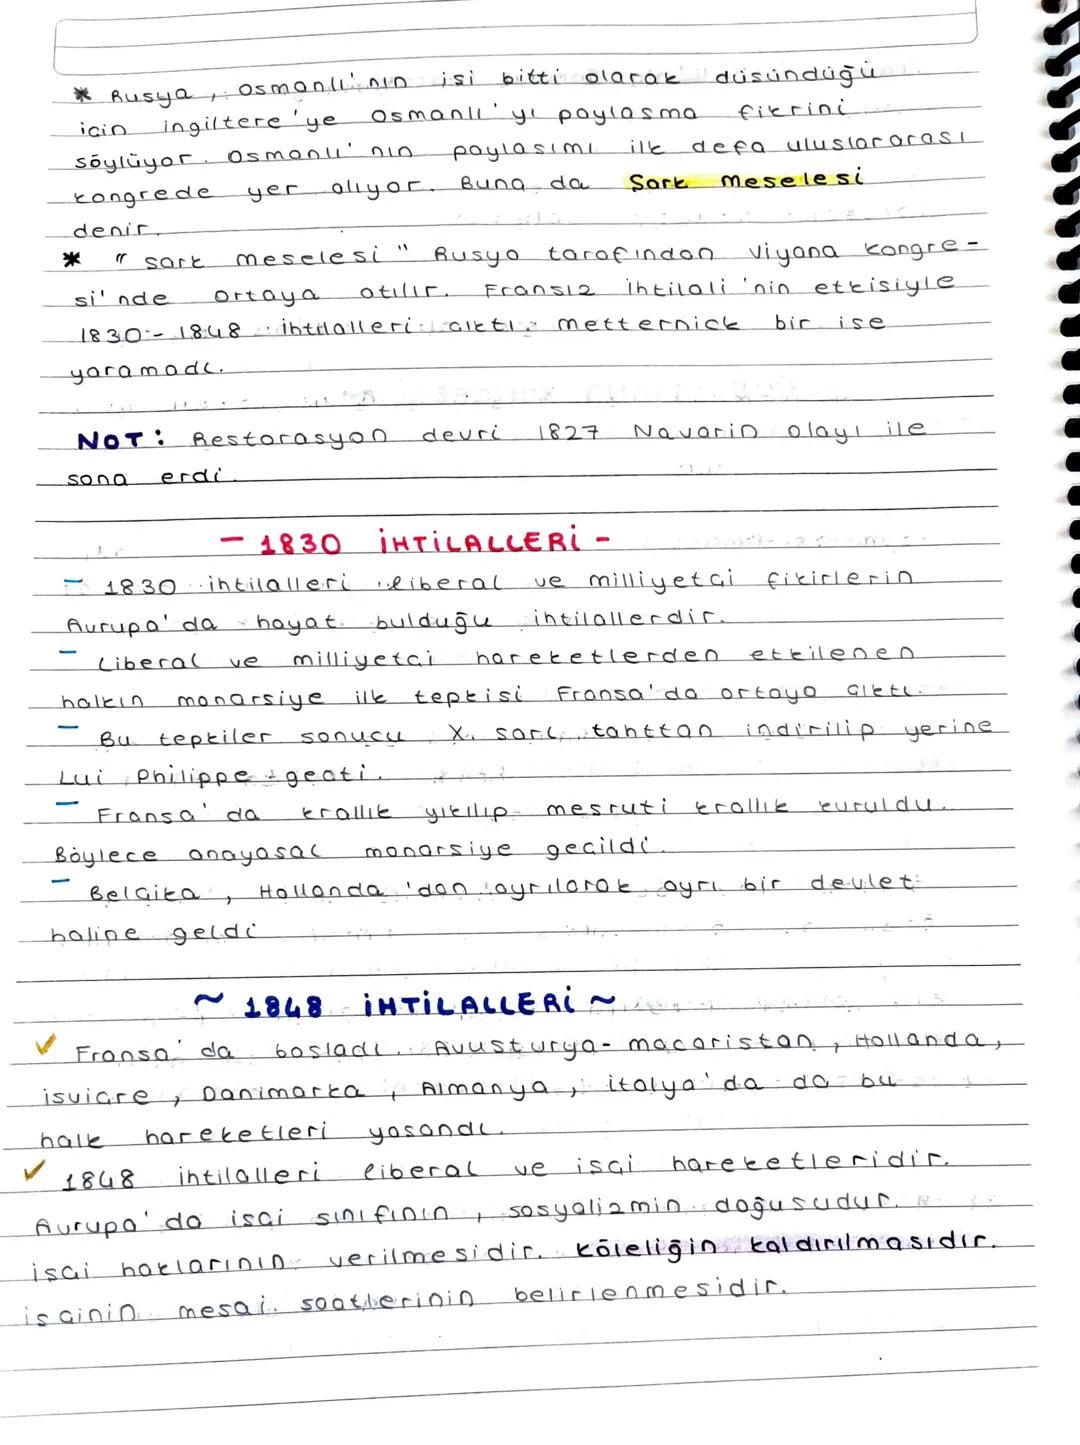 * Rusya, Osmanlı'nın işi bitti olarak düşündüğü
için ingiltere'ye Osmanlı'yı paylaşma fikrini
söylüyor. Osmanlı'nın paylaşımı ilk defa uluslararası
kongrede yer alıyor. Buna da Şark Meselesi
denir.
* "şark meselesi" Rusya tarafından viyana kongre-
si'nde ortaya atılır. Fransız ihtilali'nin etkisiyle
1830-1848 ihtilalleri çıktı. metternick bir işe
yaramadı.
NOT: Restorasyon devri 1827 Navarin olayı ile
sona erdi.
- 1830 İHTİLALLERİ -
- 1830 ihtilalleri liberal ve milliyetçi fikirlerin
Avrupa'da hayat bulduğu ihtilallerdir.
- Liberal ve milliyetçi hareketlerden etkilenen
halkın monarşiye ilk tepkisi Fransa'da ortaya çıktı.
- Bu tepkiler sonucu X. şarl tahttan indirilip yerine
Lui Philippe geçti.
- Fransa'da krallık yıkılıp meşruti krallık kuruldu.
Böylece anayasal monarşiye geçildi.
- Belçika, Hollanda'dan ayrılarak ayrı bir devlet
haline geldi
~ 1848 İHTİLALLERİ ~
✓ Fransa'da başladı. Avusturya-macaristan, Hollanda,
isviçre, Danimarka, Almanya, italya'da da bu
halk hareketleri yaşandı.
✓ 1848 ihtilalleri liberal ve işçi hareketleridir.
Avrupa'da işçi sınıfının, sosyalizmin doğuşudur.
işçi haklarının verilmesidir. köleliğin kaldırılmasıdır.
işçinin mesai saatlerinin belirlenmesidir.